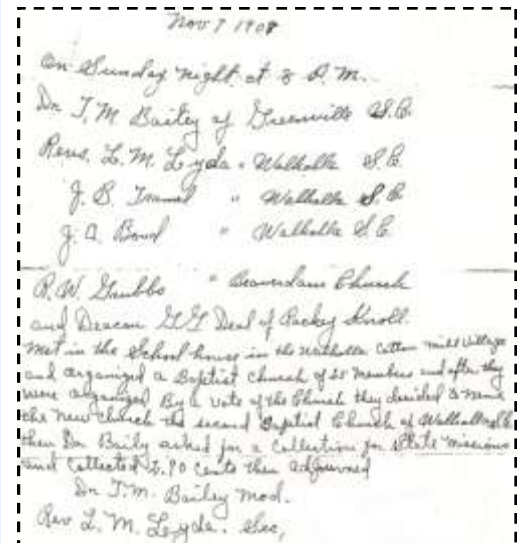 Nov 7 1908
On Sunday night at 8 P.M.
Dr T. M Bailey of Greenville S.C.
Revs. L. M. Lyda " Walhalla S.C.
J. S. " Walhalla S.C
J. A. Bond " Walhalla S.C.
R. W. Grubbs " Beaverdam Church
and Deacon G G Deal of Rocky Knoll.
Met in the School house in the Walhalla Cotton mill Village
and organized a Baptist Church of 25 Members and after they
were organized By a vote of the Church they decided to name
the new Church the second Baptist Church of Walhalla S.C.
then Dr Baily asked for a Collection for State Missions
and Collected 2.90 Cents then adjourned
Dr T. M. Bailey Mod.
Rev L. M. Lyda. Sec,